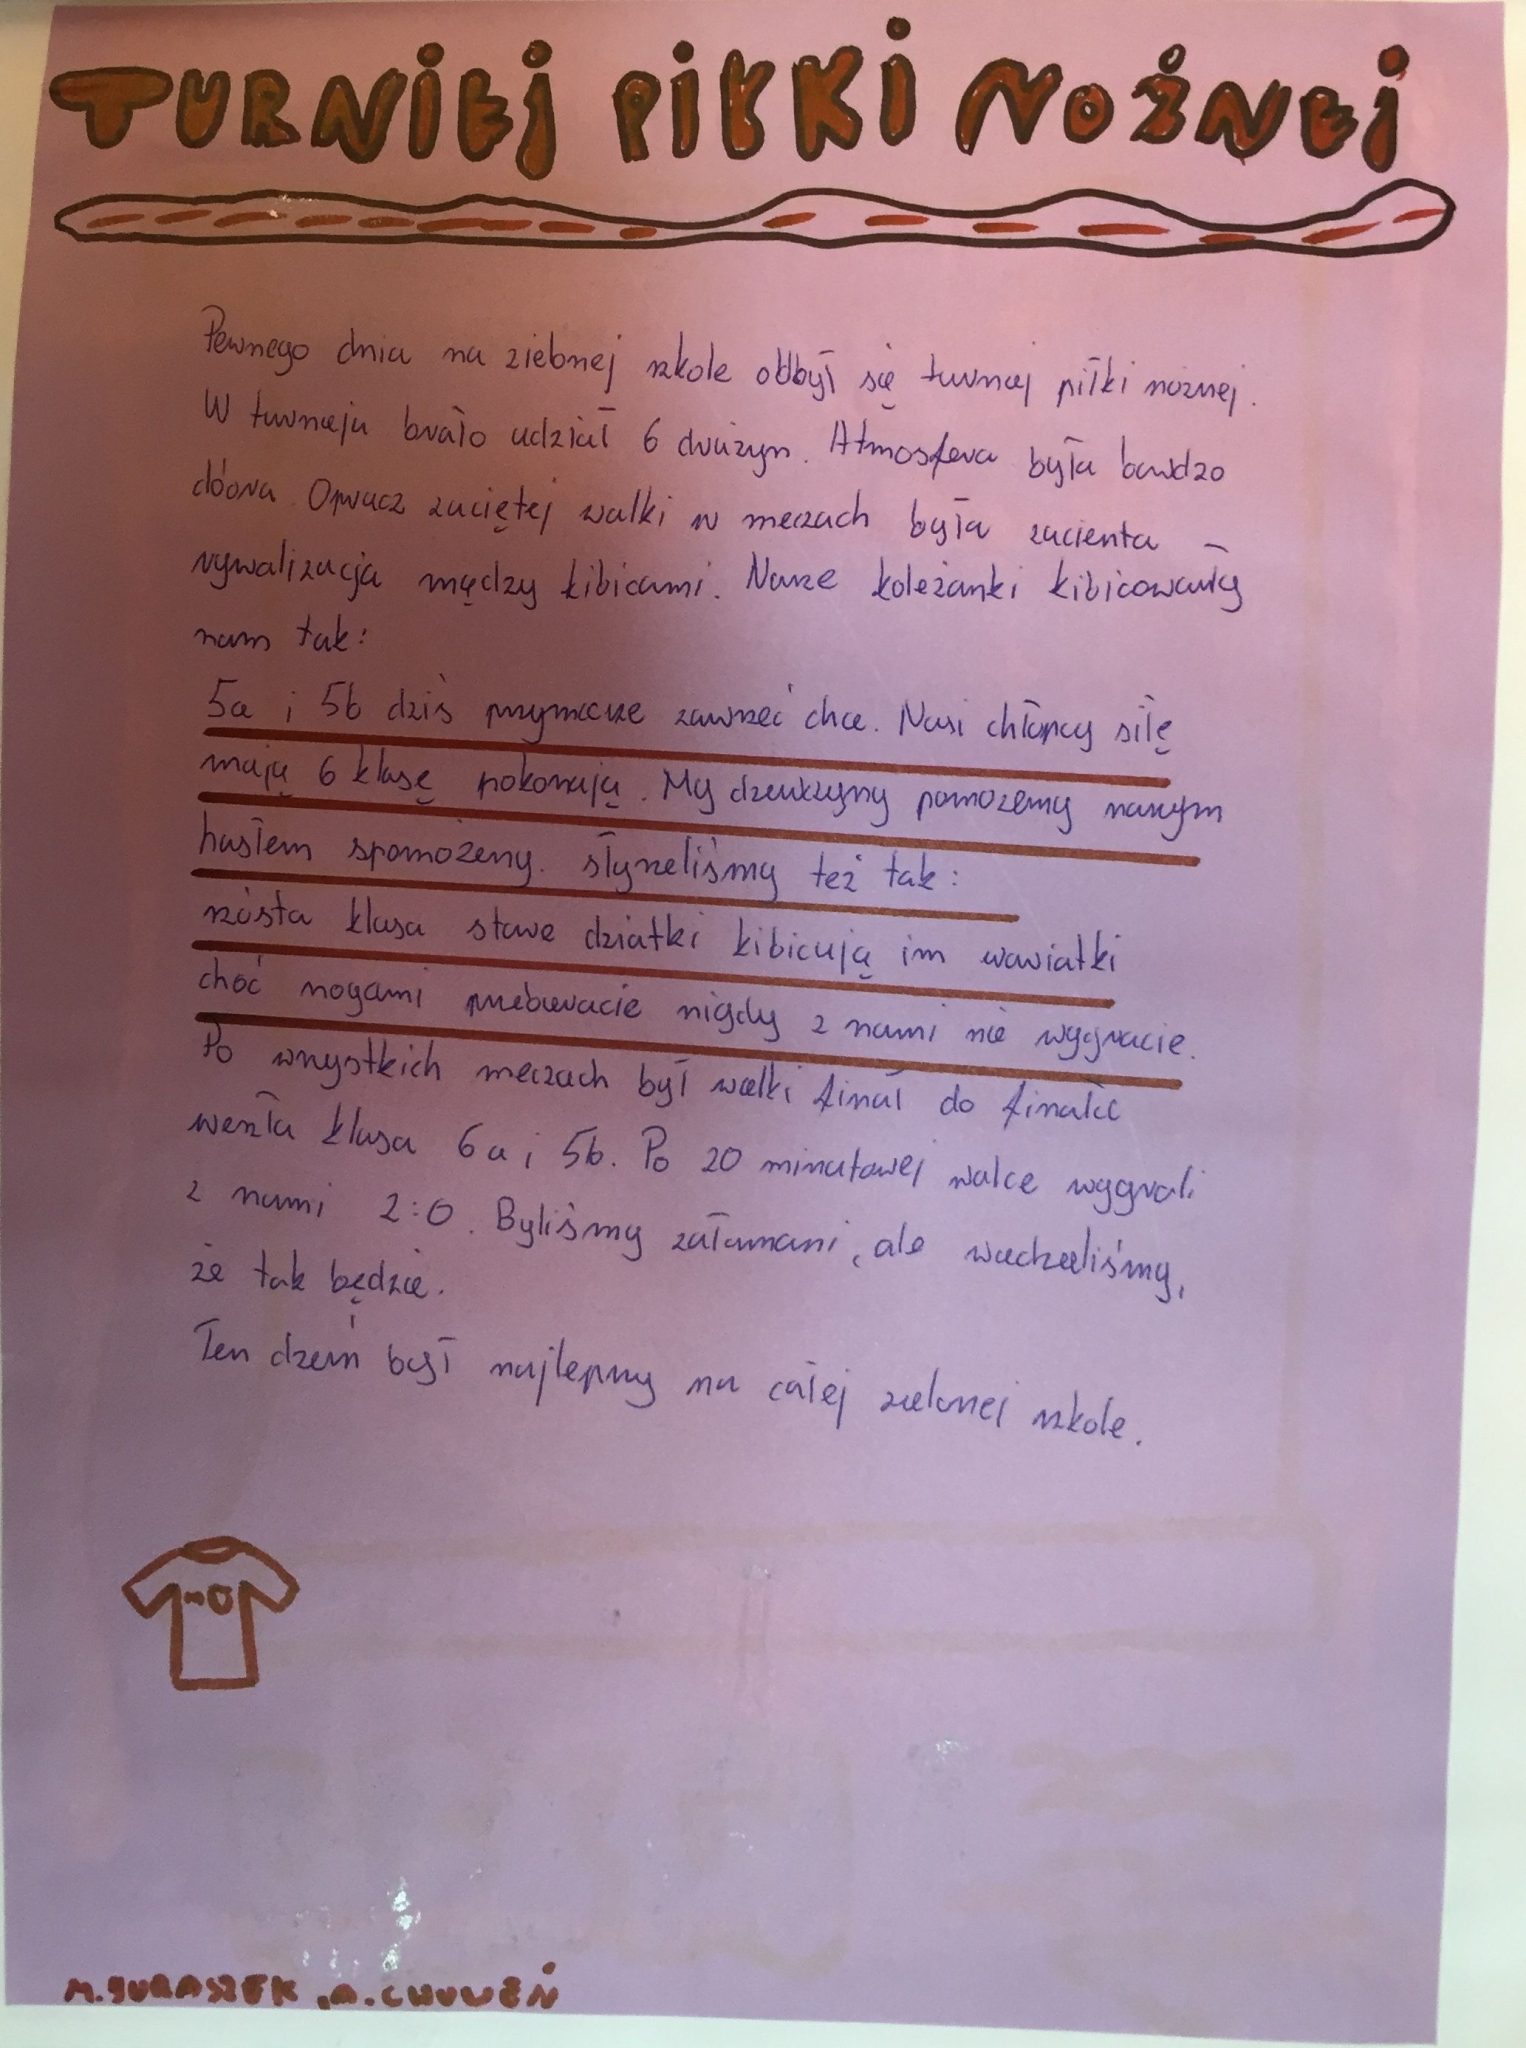 TURNIEJ PIŁKI NOŻNEJ
Pewnego dnia na zielonej szkole odbył się turniej piłki nożnej.
W turnieju brało udział 6 drużyn. Atmosfera była bardzo
dobra. Oprucz zaciętej walki w meczach była zacienta
rywalizacja mędzy kibicami. Nasze koleżanki kibicowały
nam tak:
5a i 5b dziś przymieże zawrzeć chce. Nasi chłopcy siłę
mają 6 klasę pokonają. My dzewczyny pomożemy naszym
hasłem spomożemy. słyszeliśmy też tak:
szósta klasa stare dziatki kibicują im wariatki
choć nogami przebieracie nigdy z nami nie wygracie.
Po wszystkich meczach był wielki finał do finału
weszła klasa 6a i 5b. Po 20 minutowej walce wygrali
z nami 2:0. Byliśmy załamani, ale wiedzieliśmy,
że tak będzie.
Ten dzeiń był najlepszy na całej zielonej szkole.
M. JURASZEK, A.